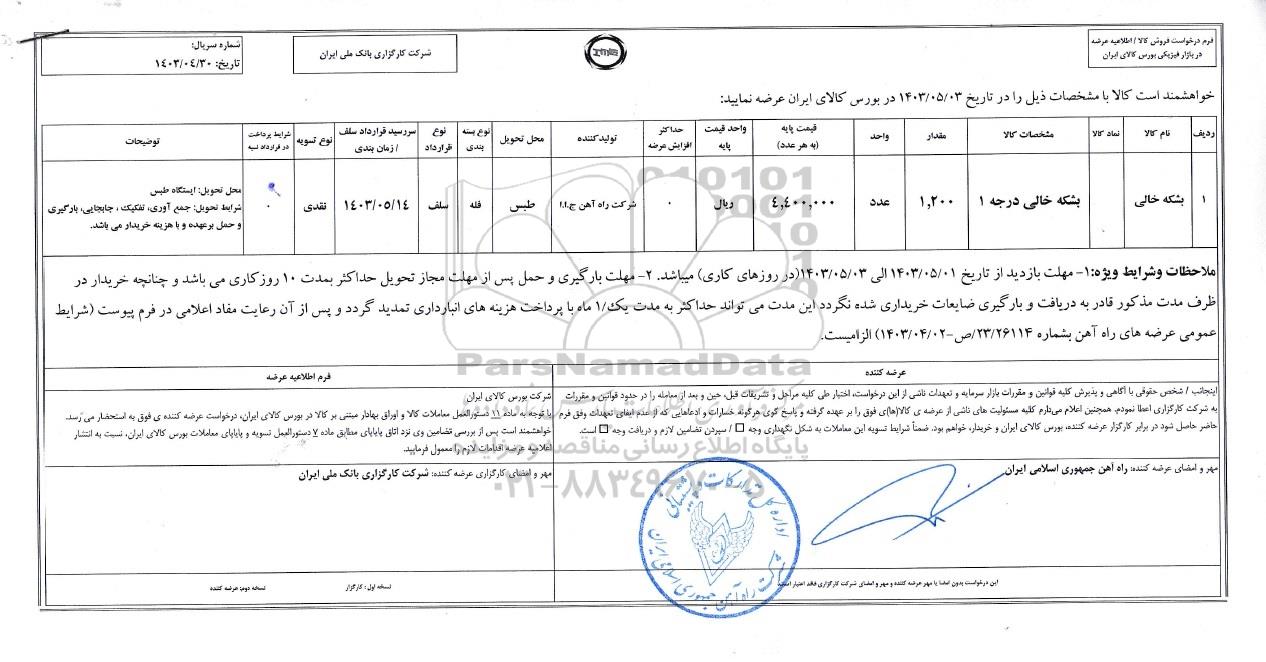 فرم درخواست فروش کالا / اطلاعیه عرضه
در بازار فیزیکی بورس کالای ایران
شرکت کارگزاری بانک ملی ایران
شماره سریال:
تاریخ: ۱۴۰۳/۰۴/۳۰
خواهشمند است کالا با مشخصات ذیل را در تاریخ ۱۴۰۳/۰۵/۰۳ در بورس کالای ایران عرضه نمایید:
ردیف نام کالا نماد کالا مشخصات کالا مقدار واحد قیمت پایه (به هر عدد) واحد قیمت پایه حداکثر افزایش عرضه تولیدکننده محل تحویل نوع بسته بندی نوع قرارداد سررسید قرارداد سلف / زمان بندی نوع تسویه شرایط پرداخت در قرارداد نسیه توضیحات
۱ بشکه خالی بشکه خالی درجه ۱ ۱,۲۰۰ عدد ۴,۴۰۰,۰۰۰ ریال ۰ شرکت راه آهن ج.ا.ا طبس فله سلف ۱۴۰۳/۰۵/۱۴ نقدی ۰
محل تحویل: ایستگاه طبس
شرایط تحویل: جمع آوری، تفکیک ، جابجایی، بارگیری
و حمل برعهده و با هزینه خریدار می باشد.
ملاحظات وشرایط ویژه:۱- مهلت بازدید از تاریخ ۱۴۰۳/۰۵/۰۱ الی ۱۴۰۳/۰۵/۰۳(در روزهای کاری) میباشد. ۲- مهلت بارگیری و حمل پس از مهلت مجاز تحویل حداکثر بمدت ۱۰ روزکاری می باشد و چنانچه خریدار در
ظرف مدت مذکور قادر به دریافت و بارگیری ضایعات خریداری شده نگردد این مدت می تواند حداکثر به مدت یک/۱ ماه با پرداخت هزینه های انبارداری تمدید گردد و پس از آن رعایت مفاد اعلامی در فرم پیوست (شرایط
عمومی عرضه های راه آهن بشماره ۲۳/۲۶۱۱۴/ص-۱۴۰۳/۰۴/۰۲) الزامیست.
ParsNamadData
پایگاه اطلاع رسانی مناقصه و مزایده
عرضه کننده
اینجانب / شخص حقوقی با آگاهی و پذیرش کلیه قوانین و مقررات بازار سرمایه و تعهدات ناشی از این درخواست، اختیار طی کلیه مراحل و تشریفات قبل، حین و بعد از معامله را در حدود قوانین و مقررات
به شرکت کارگزاری اعطا نمودم. همچنین اعلام می‌دارم کلیه مسئولیت های ناشی از عرضه ی کالا(ها)ی فوق را بر عهده گرفته و پاسخ گوی هرگونه خسارات و ادعاهایی که از عدم ایفای تعهدات وفق فرم
حاضر حاصل شود در برابر کارگزار عرضه کننده، بورس کالای ایران و خریدار، خواهم بود. ضمناً شرایط تسویه این معاملات به شکل نگهداری وجه ☐ / سپردن تضامین لازم و دریافت وجه ☐ است.
مهر و امضای عرضه کننده: راه آهن جمهوری اسلامی ایران
فرم اطلاعیه عرضه
شرکت بورس کالای ایران
با توجه به ماده ۱۱ دستورالعمل معاملات کالا و اوراق بهادار مبتنی بر کالا در بورس کالای ایران، درخواست عرضه کننده ی فوق به استحضار می رسد.
خواهشمند است پس از بررسی تضامین وی نزد اتاق پایاپای مطابق ماده ۷ دستورالعمل تسویه و پایاپای معاملات بورس کالای ایران، نسبت به انتشار
اعلامیه عرضه اقدامات لازم را معمول فرمایید.
مهر و امضای کارگزاری عرضه کننده: شرکت کارگزاری بانک ملی ایران
اداره کل تدارکات و پشتیبانی
شرکت راه آهن جمهوری اسلامی ایران
این درخواست بدون امضا یا مهر عرضه کننده و مهر و امضای شرکت کارگزاری فاقد اعتبار است.
نسخه اول: کارگزار
نسخه دوم: عرضه کننده